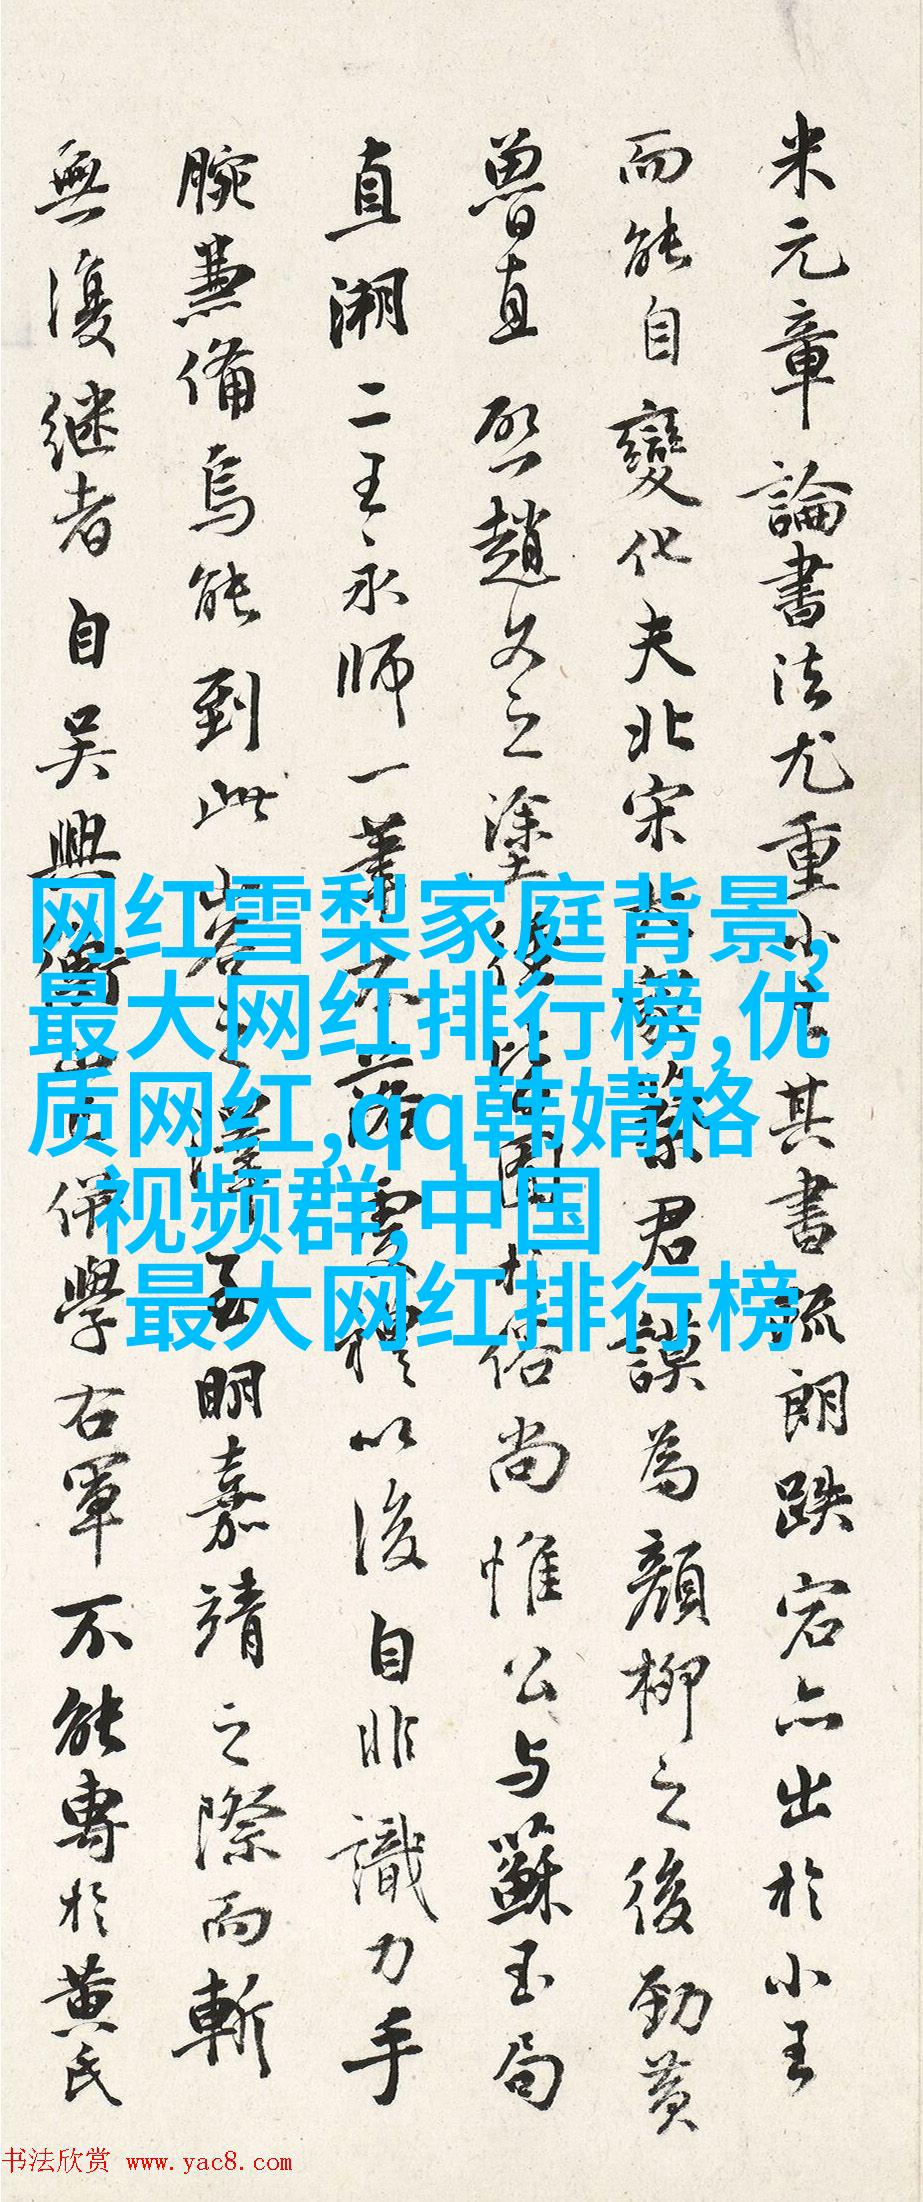 米元章論書法尤重小王其書疏朗跌宕亦出於小王
而能自變化夫北宋君謨為顏柳之後勁黃
魯直啓趙文之塗後囿於俗尚惟公与蘇玉局
直溯二王永師一筆不落唐礎以後自非識力手
腕兼備烏能到此明嘉靖之際而斬
無復继者自吴興併學右軍不能專於黃氏
网红雪梨家庭背景,
最大网红排行榜,优
质网红,qq韩婧格
视频群,中国
最大网红排行榜
书法欣赏 www.yac8.com